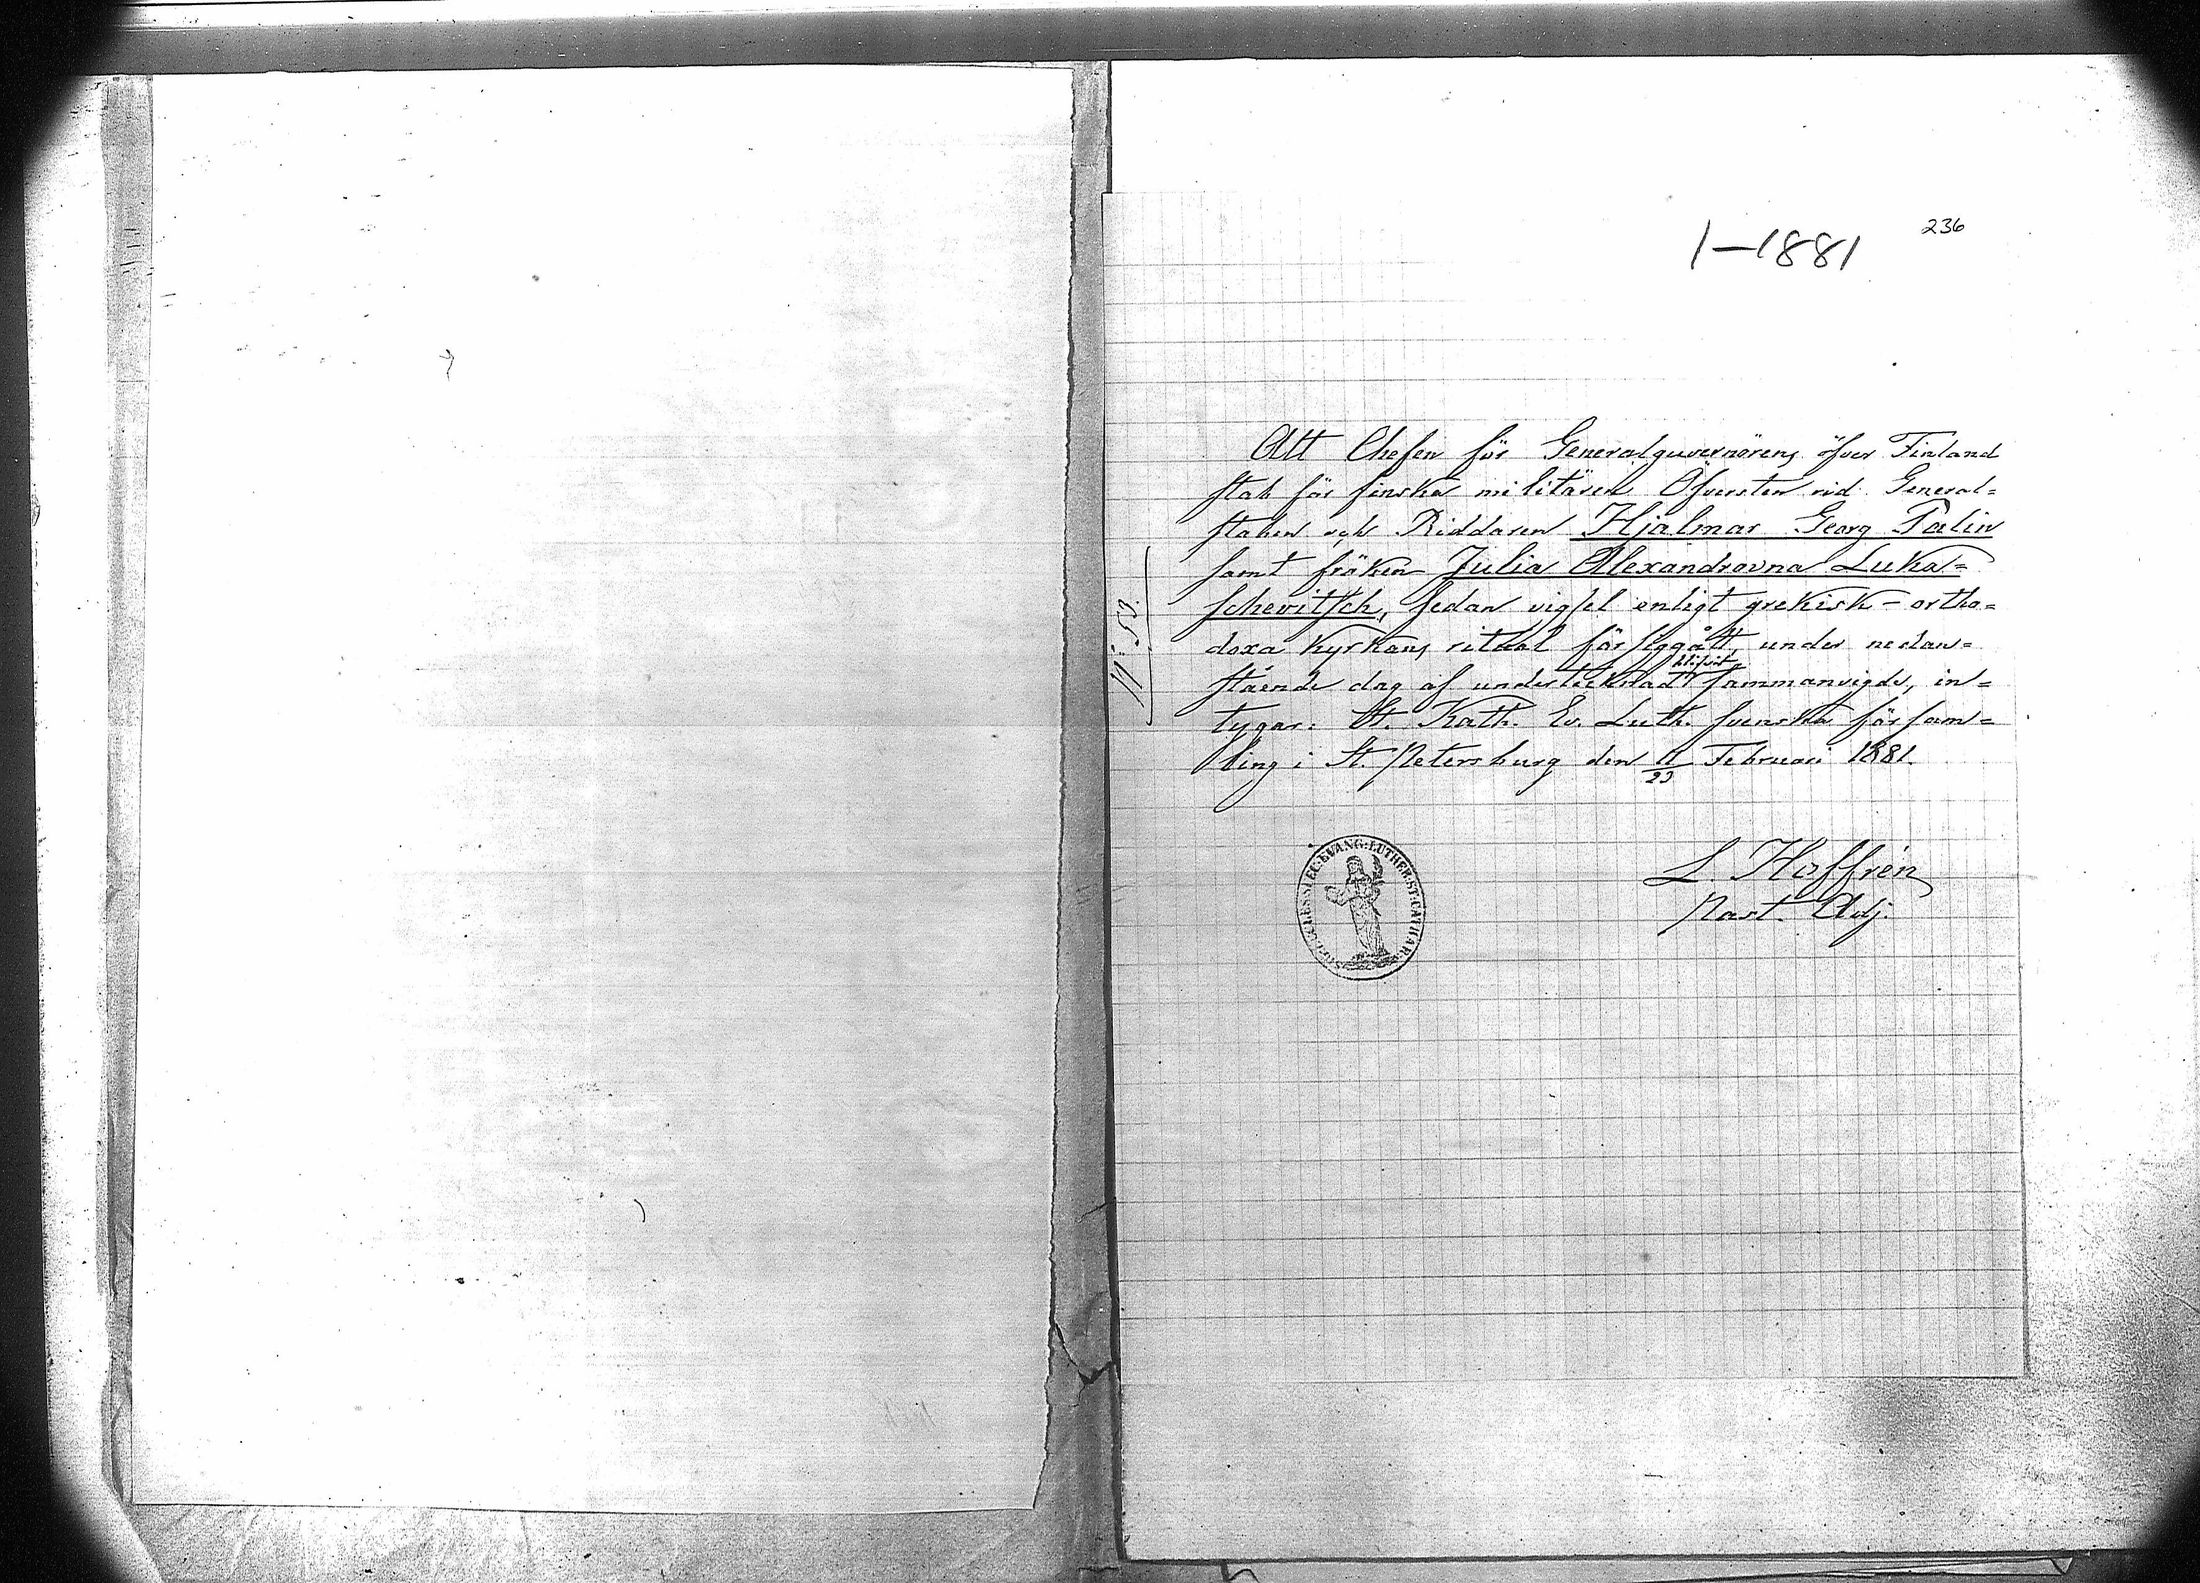 236
1-1881
Att Chefen för Generalguvernörens öfver Finland
stab för finska militären Öfversten vid General=
staben och Riddaren Hjalmar Georg Palin
samt fröken Julia Alexandrovna Luka=
schevitsch, sedan vigsel enligt grekisk-ortho=
doxa kyrkans ritual försiggått, under nedan=
blifvit
stående dag af undertecknad sammanvigde, in=
tygar: St. Kath. Ev. Luth. svenska försam=
ling i St. Petersburg den 11/23 Februari 1881.
N:o 53.
L. Hoffrén
Past. Adj.
EVANG: LUTHER: ST: CATHAR: